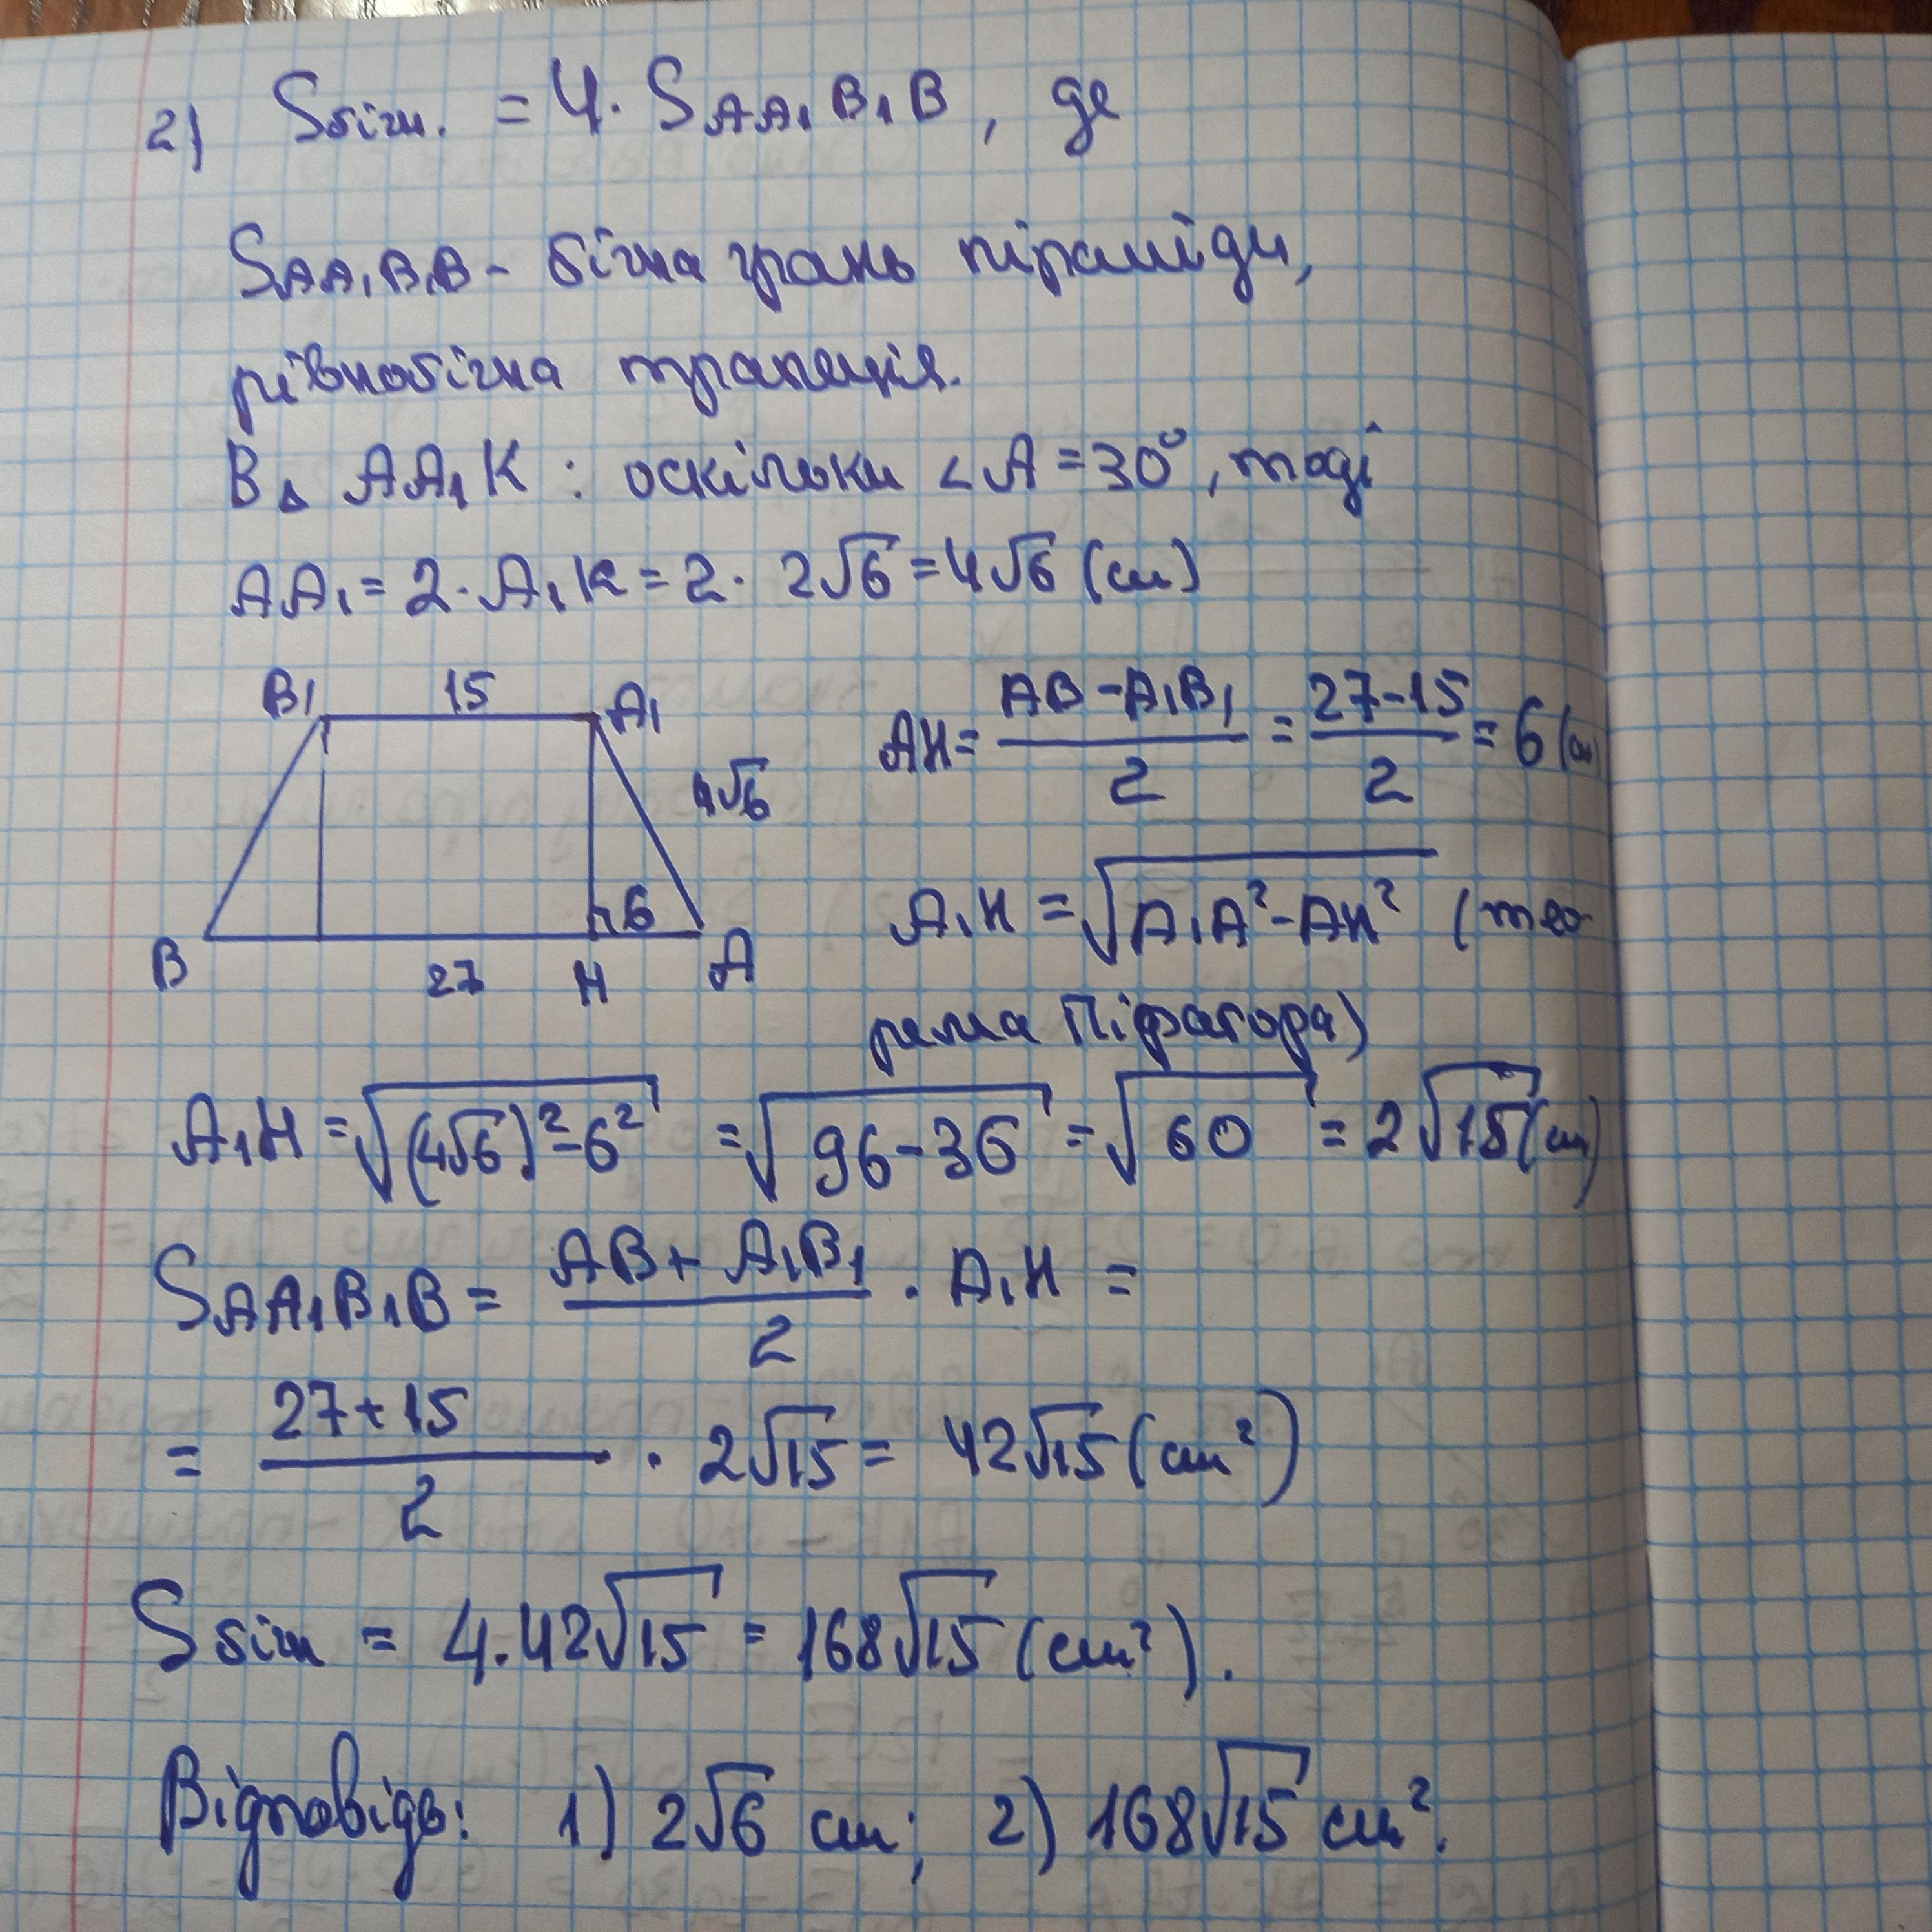 2) Sбічн. = 4 · SAA₁B₁B, де
SAA₁B₁B - бічна грань піраміди,
рівнобічна трапеція.
В △ AA₁K : оскільки ∠A = 30°, тоді
AA₁ = 2 · A₁K = 2 · 2√6 = 4√6 (см)
B₁ 15 A₁
4√6
6
B 27 H A
AH = (AB - A₁B₁)/2 = (27 - 15)/2 = 6 (см)
A₁H = √(A₁A² - AH²) (тео-
рема Піфагора)
A₁H = √((4√6)² - 6²) = √(96 - 36) = √60 = 2√15 (см)
SAA₁B₁B = (AB + A₁B₁)/2 · A₁H =
= (27 + 15)/2 · 2√15 = 42√15 (см²)
Sбічн = 4 · 42√15 = 168√15 (см²).
Відповідь: 1) 2√6 см; 2) 168√15 см².